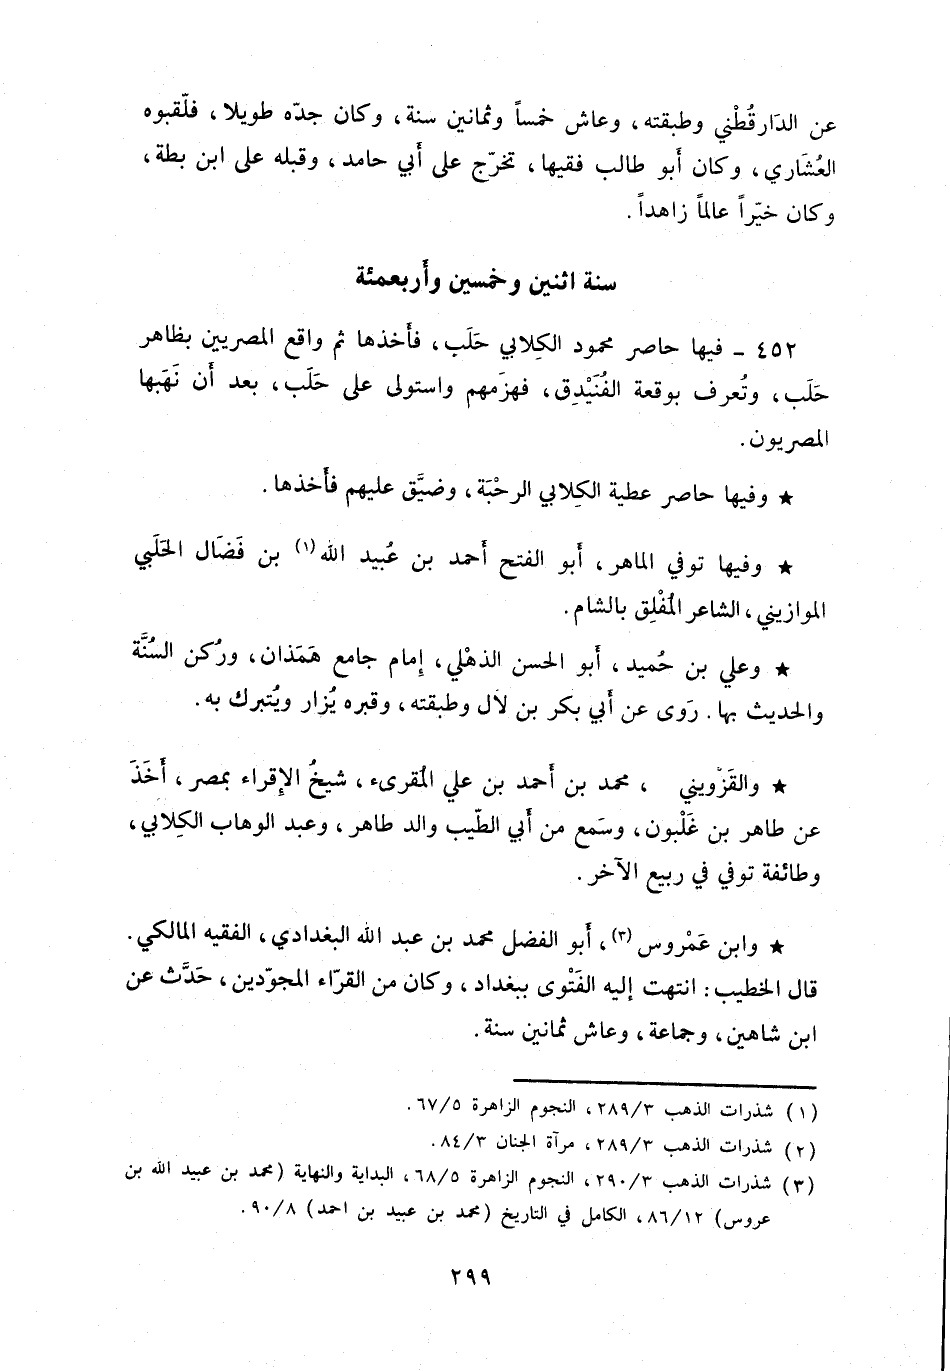 عن الدَارقُطْني وطبقته، وعاش خمساً وثمانين سنة، وكان جدّه طويلا، فلّقبوه
العُشَاري، وكان أبو طالب فقيها، تخرّج على أبي حامد، وقبله على ابن بطة،
وكان خيّراً عالماً زاهداً.
سنة اثنين وخمسين وأربعمئة
٤٥٢ ـ فيها حاصر محمود الكِلابي حَلَب، فأخذها ثم واقع المصريين بظاهر
حَلَب، وتُعرف بوقعة الفُنَيْدِق، فهزَمهم واستولى على حَلَب، بعد أن نَهَبها
المصريون.
★ وفيها حاصر عطية الكِلابي الرحْبَة، وضيَّق عليهم فأخذها.
★ وفيها توفي الماهر، أبو الفتح أحمد بن عُبيد الله(١) بن فَضَال الحَلَبي
الموازيني، الشاعر المُفْلِق بالشام.
★ وعلي بن حُميد، أبو الحسن الذهْلي، إمام جامع هَمَذان، ورُكن السُنَّة
والحديث بها. رَوى عن أبي بكر بن لال وطبقته، وقبره يُزار ويُتبرك به.
★ والقَزْويني ، محمد بن أحمد بن علي المُقرىء، شيخُ الإقراء بمصر، أخَذَ
عن طاهر بن غَلْبون، وسَمع من أبي الطّيب والد طاهر، وعبد الوهاب الكِلابي،
وطائفة توفي في ربيع الآخر.
★ وابن عَمْروس(٣)، أبو الفضل محمد بن عبد الله البغدادي، الفقيه المالكي.
قال الخطيب: انتهت إليه الفَتْوى ببغداد، وكان من القرّاء المجوّدين، حَدَّث عن
ابن شاهين، وجماعة، وعاش ثمانين سنة.
(١) شذرات الذهب ٢٨٩/٣، النجوم الزاهرة ٦٧/٥.
(٢) شذرات الذهب ٢٨٩/٣، مرآة الجنان ٨٤/٣.
(٣) شذرات الذهب ٢٩٠/٣، النجوم الزاهرة ٦٨/٥، البداية والنهاية (محمد بن عبيد الله بن
عروس) ٨٦/١٢، الكامل في التاريخ (محمد بن عبيد بن احمد) ٩٠/٨.
٢٩٩